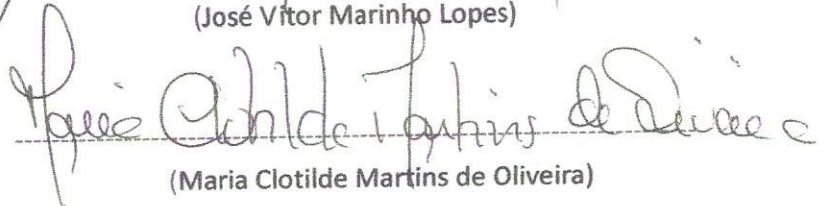 (José Vítor Marinho Lopes)
Maria Clotilde Martins de Oliveira
(Maria Clotilde Martins de Oliveira)